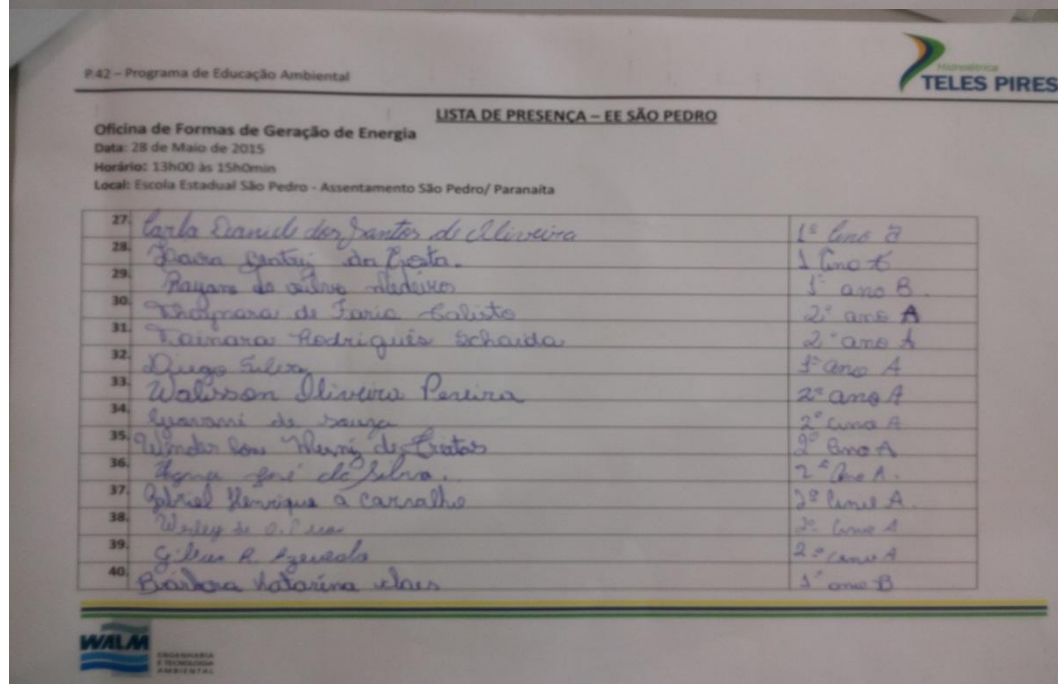 P.42 – Programa de Educação Ambiental
Hidrelétrica
TELES PIRES
LISTA DE PRESENÇA – EE SÃO PEDRO
Oficina de Formas de Geração de Energia
Data: 28 de Maio de 2015
Horário: 13h00 às 15h0min
Local: Escola Estadual São Pedro - Assentamento São Pedro/ Paranaíta
27. Carla Daniele dos Santos de Oliveira 1º ano
28. da 1 ano
29. de Medeiros 1º ano B
30. Thaynara de Faria Calisto 2º ano A
31. Tainara Rodrigues Schaida 2º ano A
32. Diego Silva 1º ano A
33. Walisson Oliveira Pereira 2º ano A
34. de Souza 2º ano A
35. de 2º ano A
36. José da Silva. 2º ano A.
37. Gabriel Henrique a Carvalho 2º ano A.
38. Wesley de 2º ano A
39. R. Azevedo 2º ano A
40. Bárbara Katarina 1º ano B
WALM
ENGENHARIA
E TECNOLOGIA
AMBIENTAL